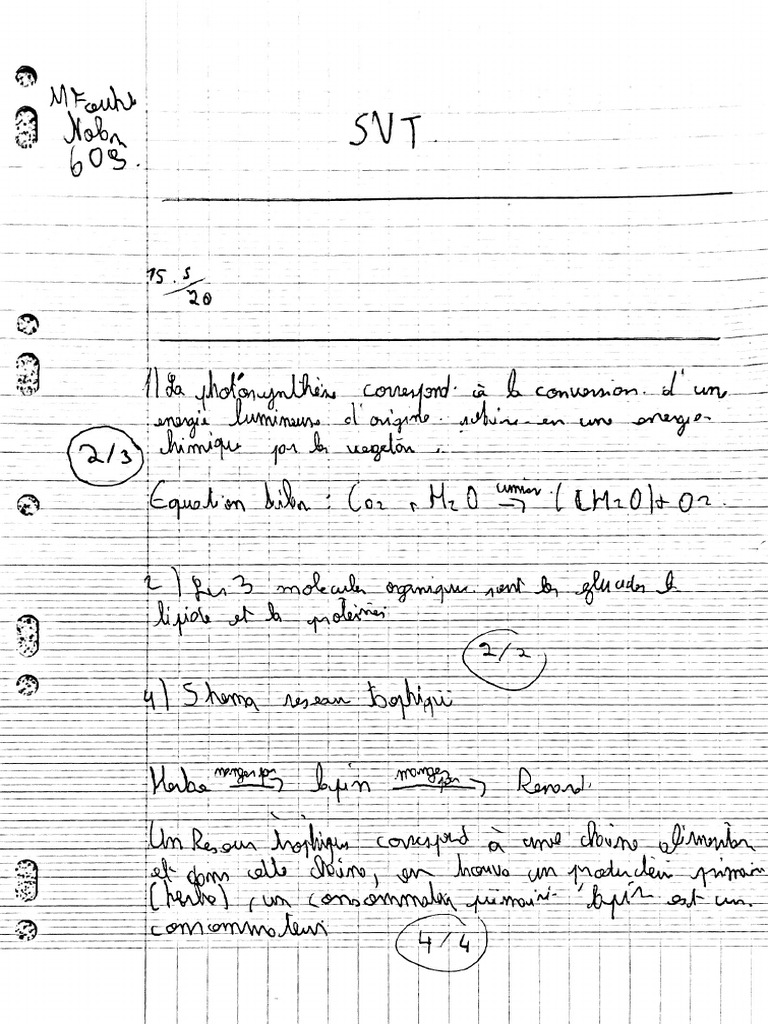 SVT
603.
15.5/20
1) La photosynthèse correspond à la conversion d'une
energie lumineuse d'origine en une energie
chimique par les
2/3
Equation bilan : CO2 + H2O → (CH2O) + O2
2) Les 3 molecules organiques sont les glucides le
lipide et la proteines
2/2
4) Shema reseau trophique
Herbe manger par → lapin manger par → Renard.
Un Reseau trophique correspond à une chaine alimentaire
et dans cette chaine, on trouve un producteur primaire
(herbe), un consommateur primaire lapin est un
consommateur
4/4